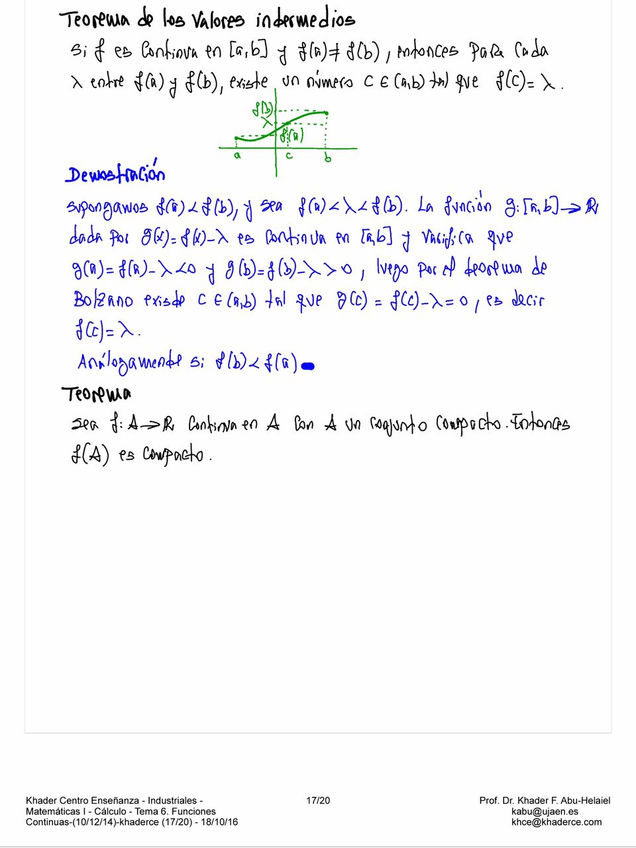 Teorema de los Valores intermedios
Si f es Continua en [a,b] y f(a)≠f(b), entonces para cada
λ entre f(a) y f(b), existe un número C ∈ (a,b) tal que f(C)=λ.
f(b)
λ
f(a)
a c b
Demostración
Supongamos f(a)<f(b), y sea f(a)<λ<f(b). La función g:[a,b]→ℝ
dada por g(x)=f(x)-λ es continua en [a,b] y verifica que
g(a)=f(a)-λ<0 y g(b)=f(b)-λ>0, luego por el teorema de
Bolzano existe C ∈ (a,b) tal que g(c)=f(c)-λ=0, es decir
f(c)=λ.
Análogamente si f(b)<f(a)
Teorema
Sea f:A→ℝ continua en A con A un conjunto compacto. Entonces
f(A) es compacto.
Khader Centro Enseñanza - Industriales -
Matemáticas I - Cálculo - Tema 6. Funciones
Continuas-(10/12/14)-khaderce (17/20) - 18/10/16
17/20
Prof. Dr. Khader F. Abu-Helaiel
kabu@ujaen.es
khce@khaderce.com